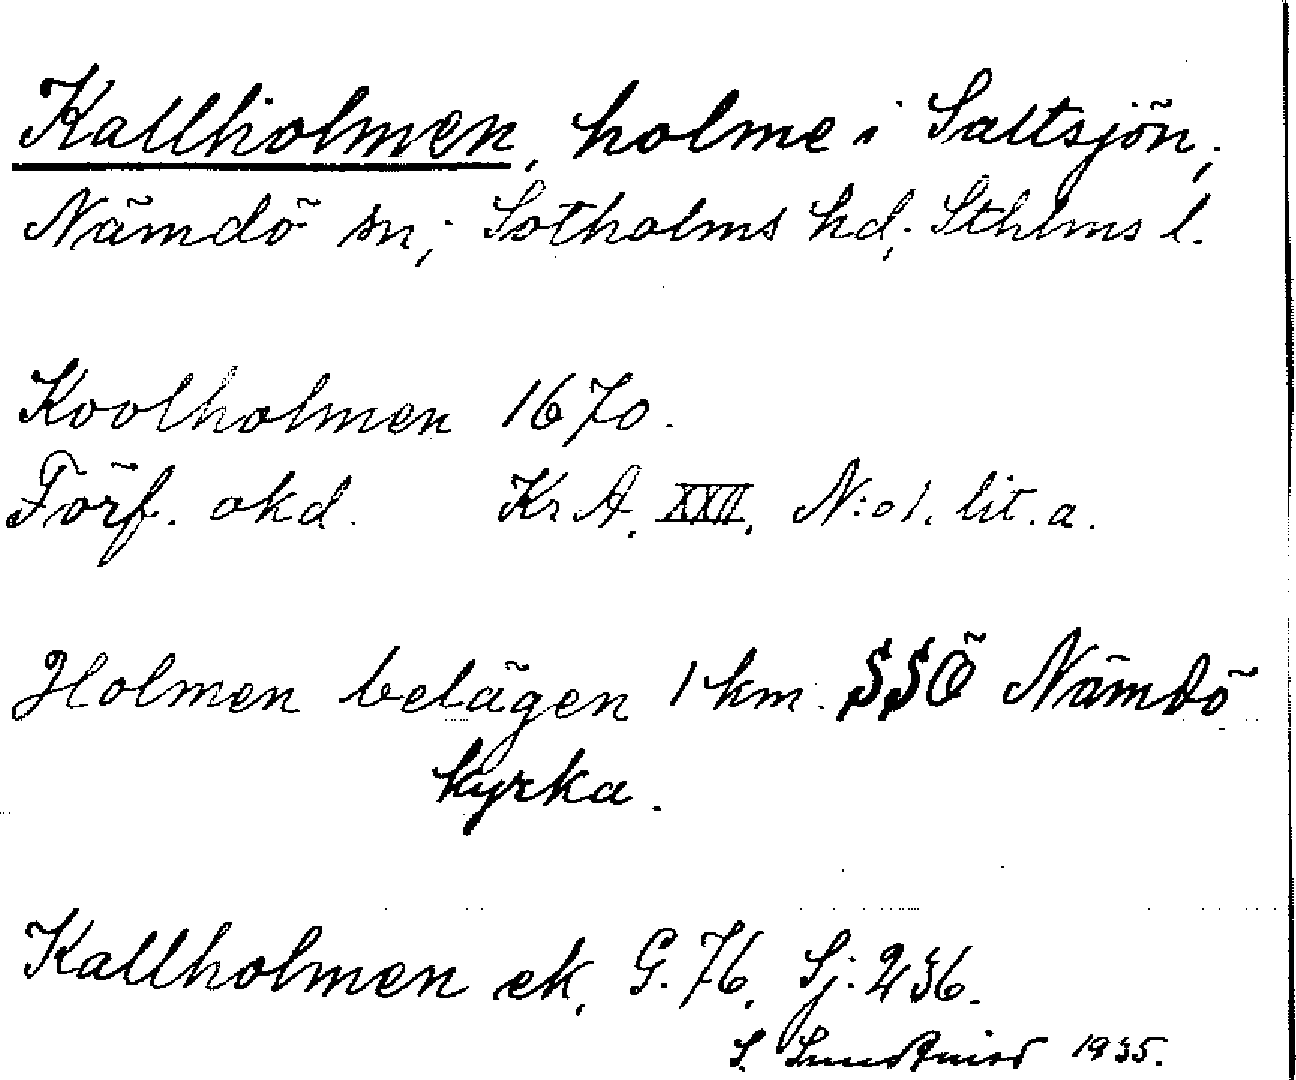 Kallholmen, holme i Saltsjön,
Nämdö sn, Sotholms hd, Sthlms l.
Koolholmen 1670.
Förf. okd. Kr A. XXII. N:o 1. lit. a.
Holmen belägen 1 km. SSÖ Nämdö
kyrka.
Kallholmen ek. G. 76. Sj. 236.
S. 1935.